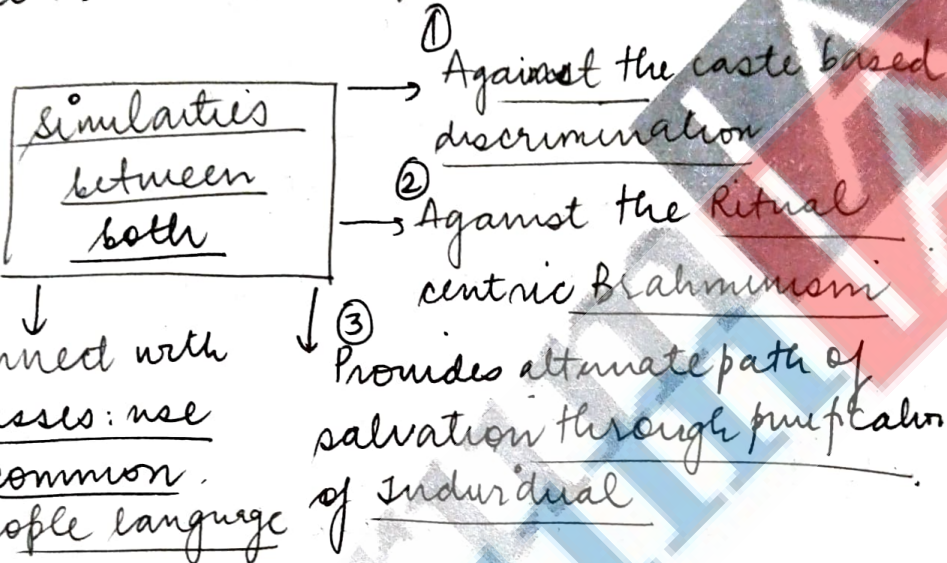 similarities
between
both
① Against the caste based
discrimination
② Against the Ritual
centric Brahminism
③ Provides alternate path of
salvation through purification
of Individual
nnect with
asses: use
common
ople language